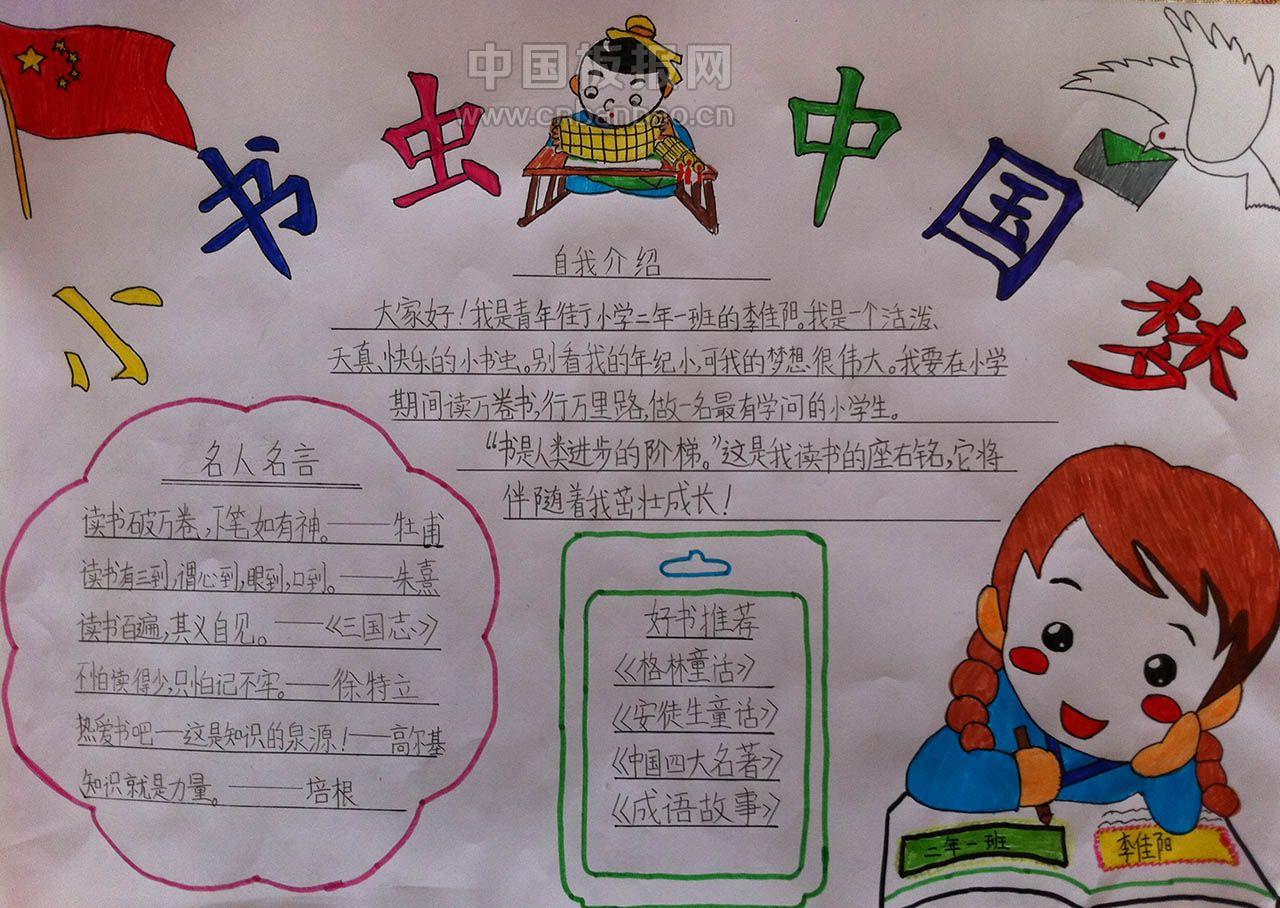 中国板报网
www.cnbanbao.cn
小书虫中国梦
自我介绍
大家好！我是青年街小学二年一班的李佳阳。我是一个活泼、
天真、快乐的小书虫。别看我的年纪小，可我的梦想很伟大。我要在小学
期间读万卷书，行万里路，做一名最有学问的小学生。
“书是人类进步的阶梯。”这是我读书的座右铭，它将
伴随着我茁壮成长！
名人名言
读书破万卷，下笔如有神。——杜甫
读书有三到，谓心到，眼到，口到。——朱熹
读书百遍，其义自见。——《三国志》
不怕读得少，只怕记不牢。——徐特立
热爱书吧——这是知识的泉源！——高尔基
知识就是力量。——培根
好书推荐
《格林童话》
《安徒生童话》
《中国四大名著》
《成语故事》
二年一班
李佳阳